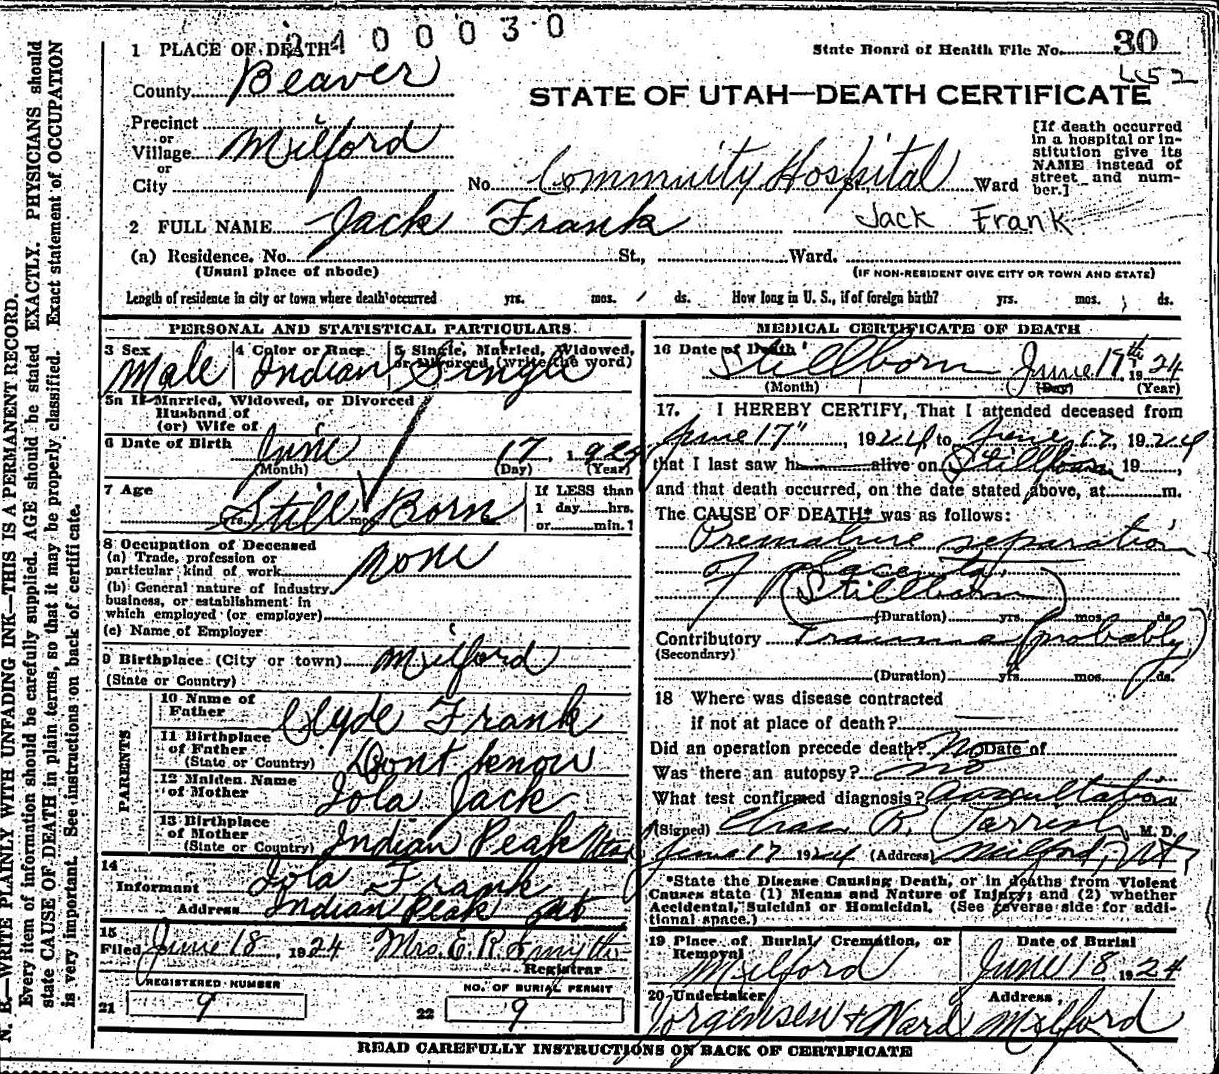 2400030
1 PLACE OF DEATH
State Board of Health File No. 30
County Beaver
STATE OF UTAH—DEATH CERTIFICATE
Precinct
or
Village Milford
or
City
No. Community Hospital St. Ward
[If death occurred
in a hospital or in-
stitution give its
NAME instead of
street and num-
ber.]
2 FULL NAME Jack Frank Jack Frank
(a) Residence. No. St., Ward.
(Usual place of abode) (IF NON-RESIDENT GIVE CITY OR TOWN AND STATE)
Length of residence in city or town where death occurred yrs. mos. ds. How long in U. S., if of foreign birth? yrs. mos. ds.
PERSONAL AND STATISTICAL PARTICULARS
3 Sex 4 Color or Race 5 Single, Married, Widowed,
or Divorced (write the word)
Male Indian Single
5a If Married, Widowed, or Divorced
Husband of
(or) Wife of
6 Date of Birth June 17, 192
(Month) (Day) (Year)
7 Age If LESS than
1 day hrs.
or min.?
Still Born
yrs. mos.
8 Occupation of Deceased
(a) Trade, profession or
particular kind of work none
(b) General nature of industry,
business, or establishment in
which employed (or employer)
(c) Name of Employer
9 Birthplace (City or town) Milford
(State or Country)
PARENTS
10 Name of
Father Clyde Frank
11 Birthplace
of Father
(State or Country) Dont know
12 Maiden Name
of Mother Iola Jack
13 Birthplace
of Mother
(State or Country) Indian Peak Utah
14
Informant Iola Frank
Address Indian Peak ut
15
Filed June 18, 1924 Mrs. E. R. Smyth
Registrar
REGISTERED NUMBER NO. OF BURIAL PERMIT
21 9 22 9
MEDICAL CERTIFICATE OF DEATH
16 Date of Death
Stillborn June 19th 1924
(Month) (Day) (Year)
17. I HEREBY CERTIFY, That I attended deceased from
June 17", 1924 to June 17, 1924
that I last saw h alive on Stillborn 19 ,
and that death occurred, on the date stated above, at m.
The CAUSE OF DEATH* was as follows:
Premature separation
of placenta.
(Stillborn)
(Duration) yrs. mos. ds.
Contributory Trauma (probably)
(Secondary)
(Duration) yrs. mos. ds.
18 Where was disease contracted
if not at place of death?
Did an operation precede death? No Date of
Was there an autopsy? no
What test confirmed diagnosis? Auscultation
(Signed) Chas. R. Parrish M. D.
June 17 1924 (Address) Milford, Ut
*State the Disease Causing Death, or in deaths from Violent
Causes state (1) Means and Nature of Injury; and (2) whether
Accidental, Suicidal or Homicidal. (See reverse side for addi-
tional space.)
19 Place of Burial, Cremation, or
Removal Date of Burial
Milford June 18 1924
20 Undertaker Address
Jorgensen & Ward Milford
READ CAREFULLY INSTRUCTIONS ON BACK OF CERTIFICATE
N. B.—WRITE PLAINLY WITH UNFADING INK—THIS IS A PERMANENT RECORD.
Every item of information should be carefully supplied. AGE should be stated EXACTLY. PHYSICIANS should
state CAUSE OF DEATH in plain terms, so that it may be properly classified. Exact statement of OCCUPATION
is very important. See instructions on back of certificate.